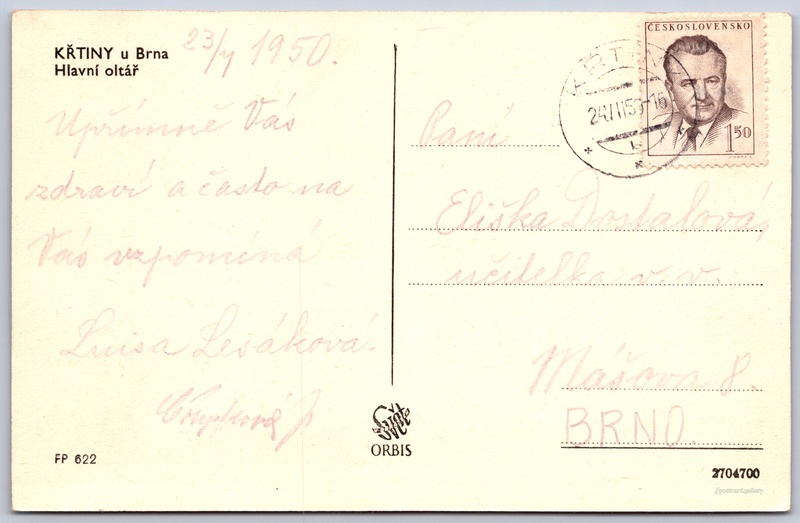 KŘTINY u Brna
Hlavní oltář
23/V 1950.
Upřímně Vás
zdraví a často na
Vás vzpomíná
Luisa Lesáková.
FP 622
ORBIS
ČESKOSLOVENSKO
1 50
KŘTINY
Paní
Eliška Dostalová,
učitelka v. v.
Mášova 8.
BRNO.
2704700